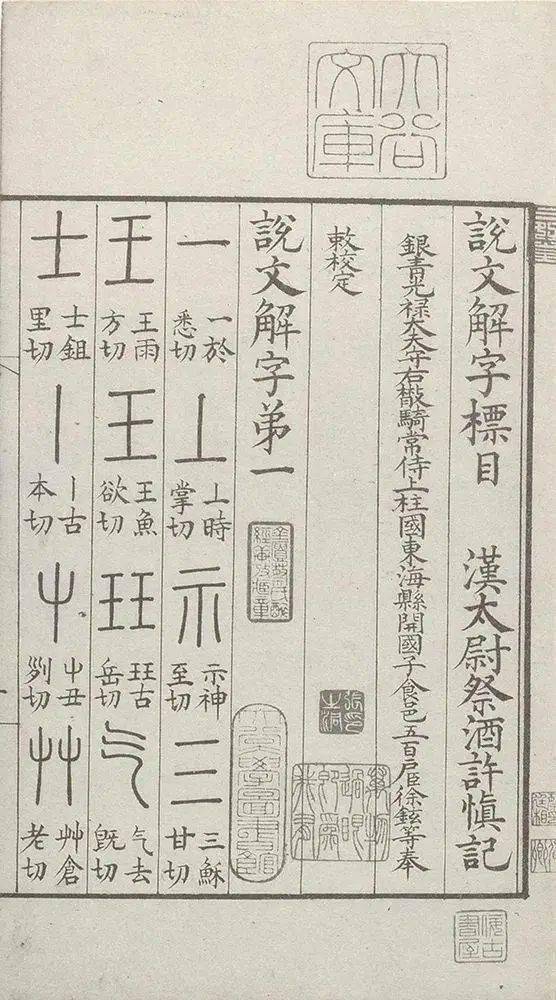 說文解字標目　漢太尉祭酒許慎記
銀青光祿大夫守右散騎常侍上柱國東海縣開國子食邑五百戶臣徐鉉等奉
敕校定
說文解字第一
一 一於悉切 丄 丄時掌切 示 示神至切 三 三穌甘切
王 王雨方切 王 王魚欲切 玨 玨古岳切 气 气去旣切
士 士鉏里切 丨 丨古本切 屮 屮丑列切 艸 艸倉老切
大谷文庫